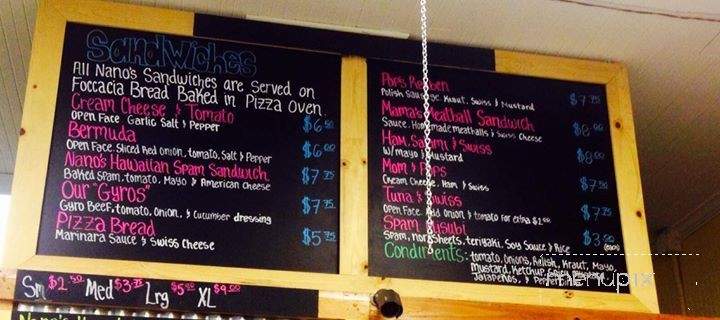 Sandwiches
All Nano's Sandwiches are Served on
Foccacia Bread Baked in Pizza Oven.
Cream Cheese & Tomato
Open Face Garlic Salt & Pepper $6.50
Bermuda
Open Face. Sliced Red onion, tomato, Salt & Pepper $6.00
Nano's Hawaiian Spam Sandwich
Baked Spam, tomato, Mayo & American Cheese $7.75
Our "Gyros"
Gyro Beef, tomato, Onion, & cucumber dressing $7.75
Pizza Bread
Marinara Sauce & Swiss Cheese $5.75
Pop's Reuben
Polish Sausage, Kraut, Swiss & Mustard $7.75
Mama's Meatball Sandwich
Sauce, Homemade meatballs & Swiss Cheese $8.00
Ham, Salami & Swiss
W/ mayo & Mustard $8.00
Mom & Pops
Cream Cheese, Ham & Swiss $7.50
Tuna & Swiss
Open Face. Add Onion & tomato for extra $2.00 $7.75
Spam Musubi
Spam, nori Sheets, teriyaki, Soy Sauce & Rice $3.50 (each)
Condiments: tomato, Onions, Relish, Kraut, Mayo,
Mustard, Ketchup, Spicy Mustard
Jalapenos, &
Sm $2.50 Med $3.75 Lrg $5.00 XL $9.00
menupix